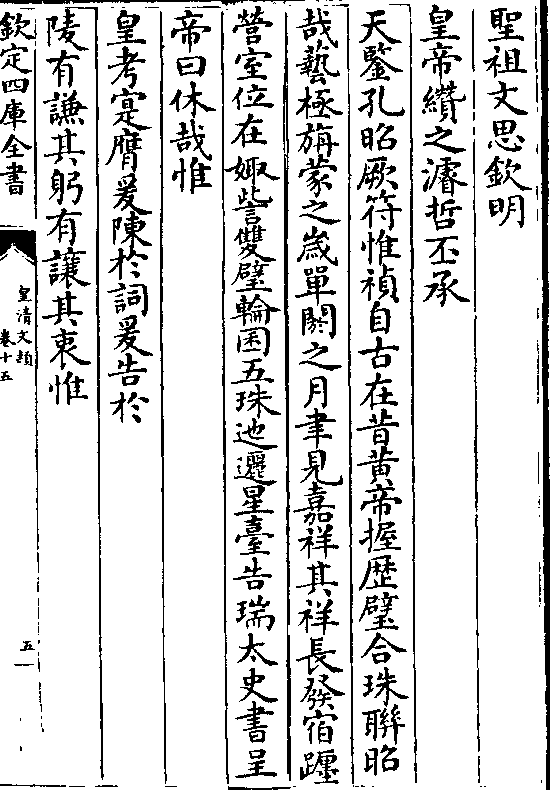 聖祖文思欽明
皇帝纘之濬哲丕承
天鑒孔昭厥符惟禎自古在昔黄帝握歴璧合珠聯昭
哉藝極旃蒙之歳單閼之月聿見嘉祥其祥長發宿躔
營室位在娵訾雙璧輪囷五珠迆邐星臺告瑞太史書呈
帝曰休哉惟
皇考寔膺爰陳於詞爰告於
陵有謙其躬有讓其衷惟
欽定四庫全書
皇清文頴
卷十五
五